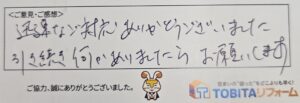 <ご意見・ご感想>
迅速なご対応ありがとうございました
引き続き何かありましたらお願いします
ご協力、誠にありがとうございました。
住まいの"困った"をどこよりも早く!
TOBITAリフォーム